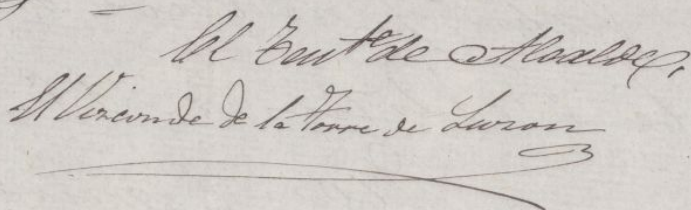 El Tente de Alcalde,
El Vizconde de la Torre de Luzon